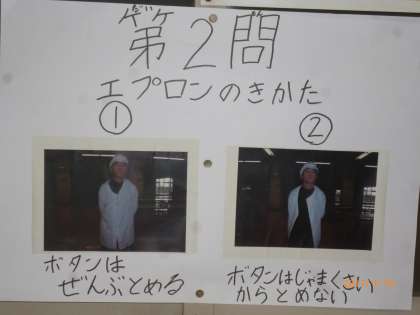 第2問
エプロンのきかた
①
②
ボタンは
ぜんぶとめる
ボタンはじゃまくさい
からとめない